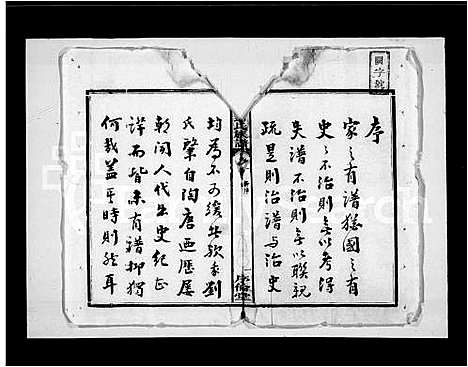 圖字號
序
家之有譜猶國之有
史之不治則無以考得
失譜不治則無以聯親
疏是則治譜与治史
均為不可緩
劉
氏肇自陶唐西歷屢
朝間人代出史紀已
詳而皆未有譜抑獨
何哉蓋平時則然耳